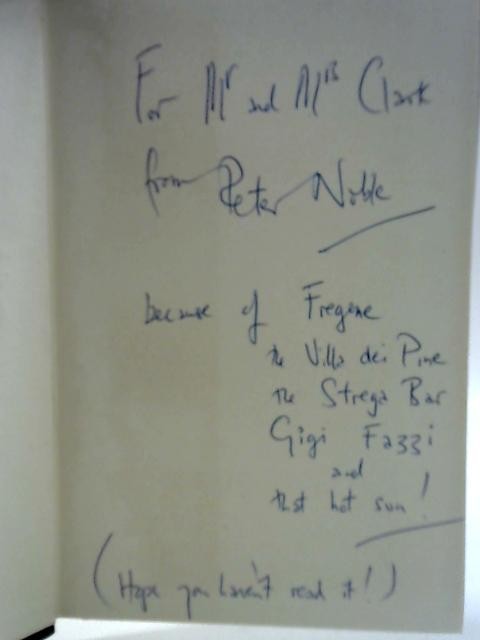 For Mr and Mrs Clark
from Peter Noble
because of Fregene
the Villa dei Pine
the Strega Bar
Gigi Fazzi
and
that hot sun!
(Hope you haven't read it!)